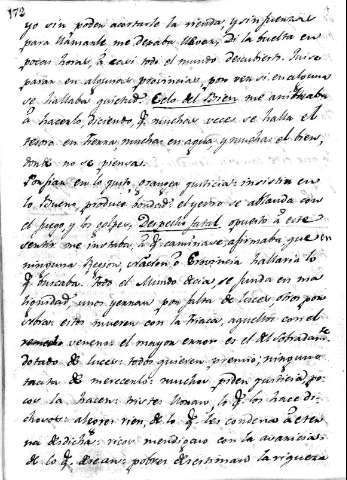 172
yo sin poder acortarle la rienda, y sin fuerzas
para llamarle me dexaba llevar. Di la buelta en
pocas horas, â casi todo el mundo descubierto. Quise
parar en algunas provincias, por ver si en alguna
se hallaba quietud. Celo del Bien me animaba
â hacerlo, diciendo, q. muchas veces se halla el
tesoro en tierra mucha en agua y muchas el bien,
donde no se piensa.
Porfiar en lo justo, grangea justicia: insistir en
lo Bueno, produce bondad: el yerro se ablanda con
el fuego, y los golpes. Despecho fatal opuesto â este
sentir me instaba, â q. caminase: afirmaba que en
ninguna Region, Nacion, ô Provincia hallaria lo
q. buscaba. Todo el Mundo decia se funda en ma
lignidad: unos yerran por falta de luces, otros por
sobra: estos mueren con la triaca, aquellos con el
veneno: el mayor error es el del sobradamte
dotado de luces: todos quieren premio; ninguno
trata de merecerlo: muchos piden justicia, po-
cos la hacen: tristes llaman lo q. los hace di-
chosos: alegres ricos, de lo q. les condena â eter
na desdicha: ricos mendigan con la avaricia:
de lo q. desean: pobres desestiman la riqueza